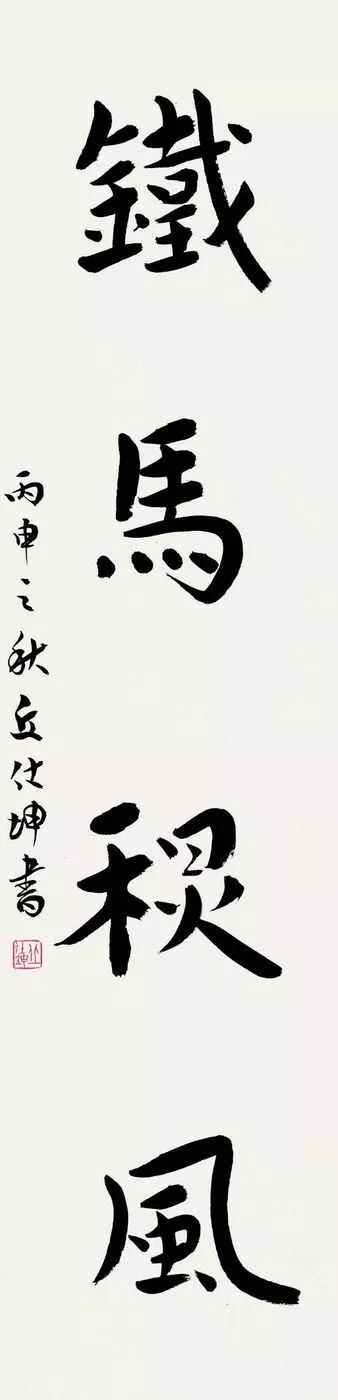 鐵馬秋風
丙申之秋丘仕坤書